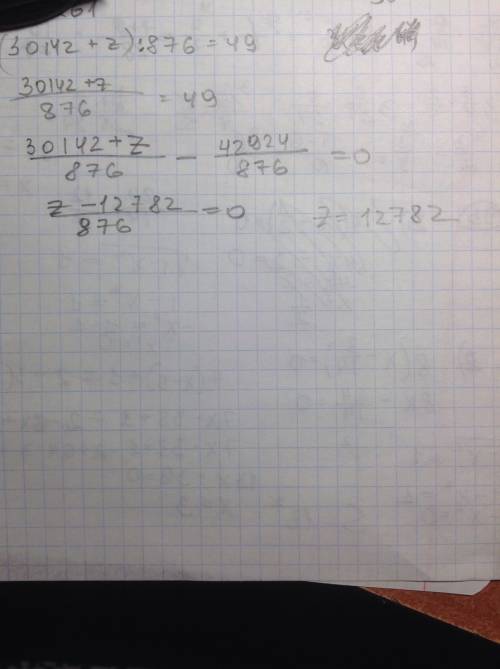 (30142 + z) : 876 = 49
30142 + z / 876 = 49
30142 + z / 876 - 42924 / 876 = 0
z - 12782 / 876 = 0 z = 12782